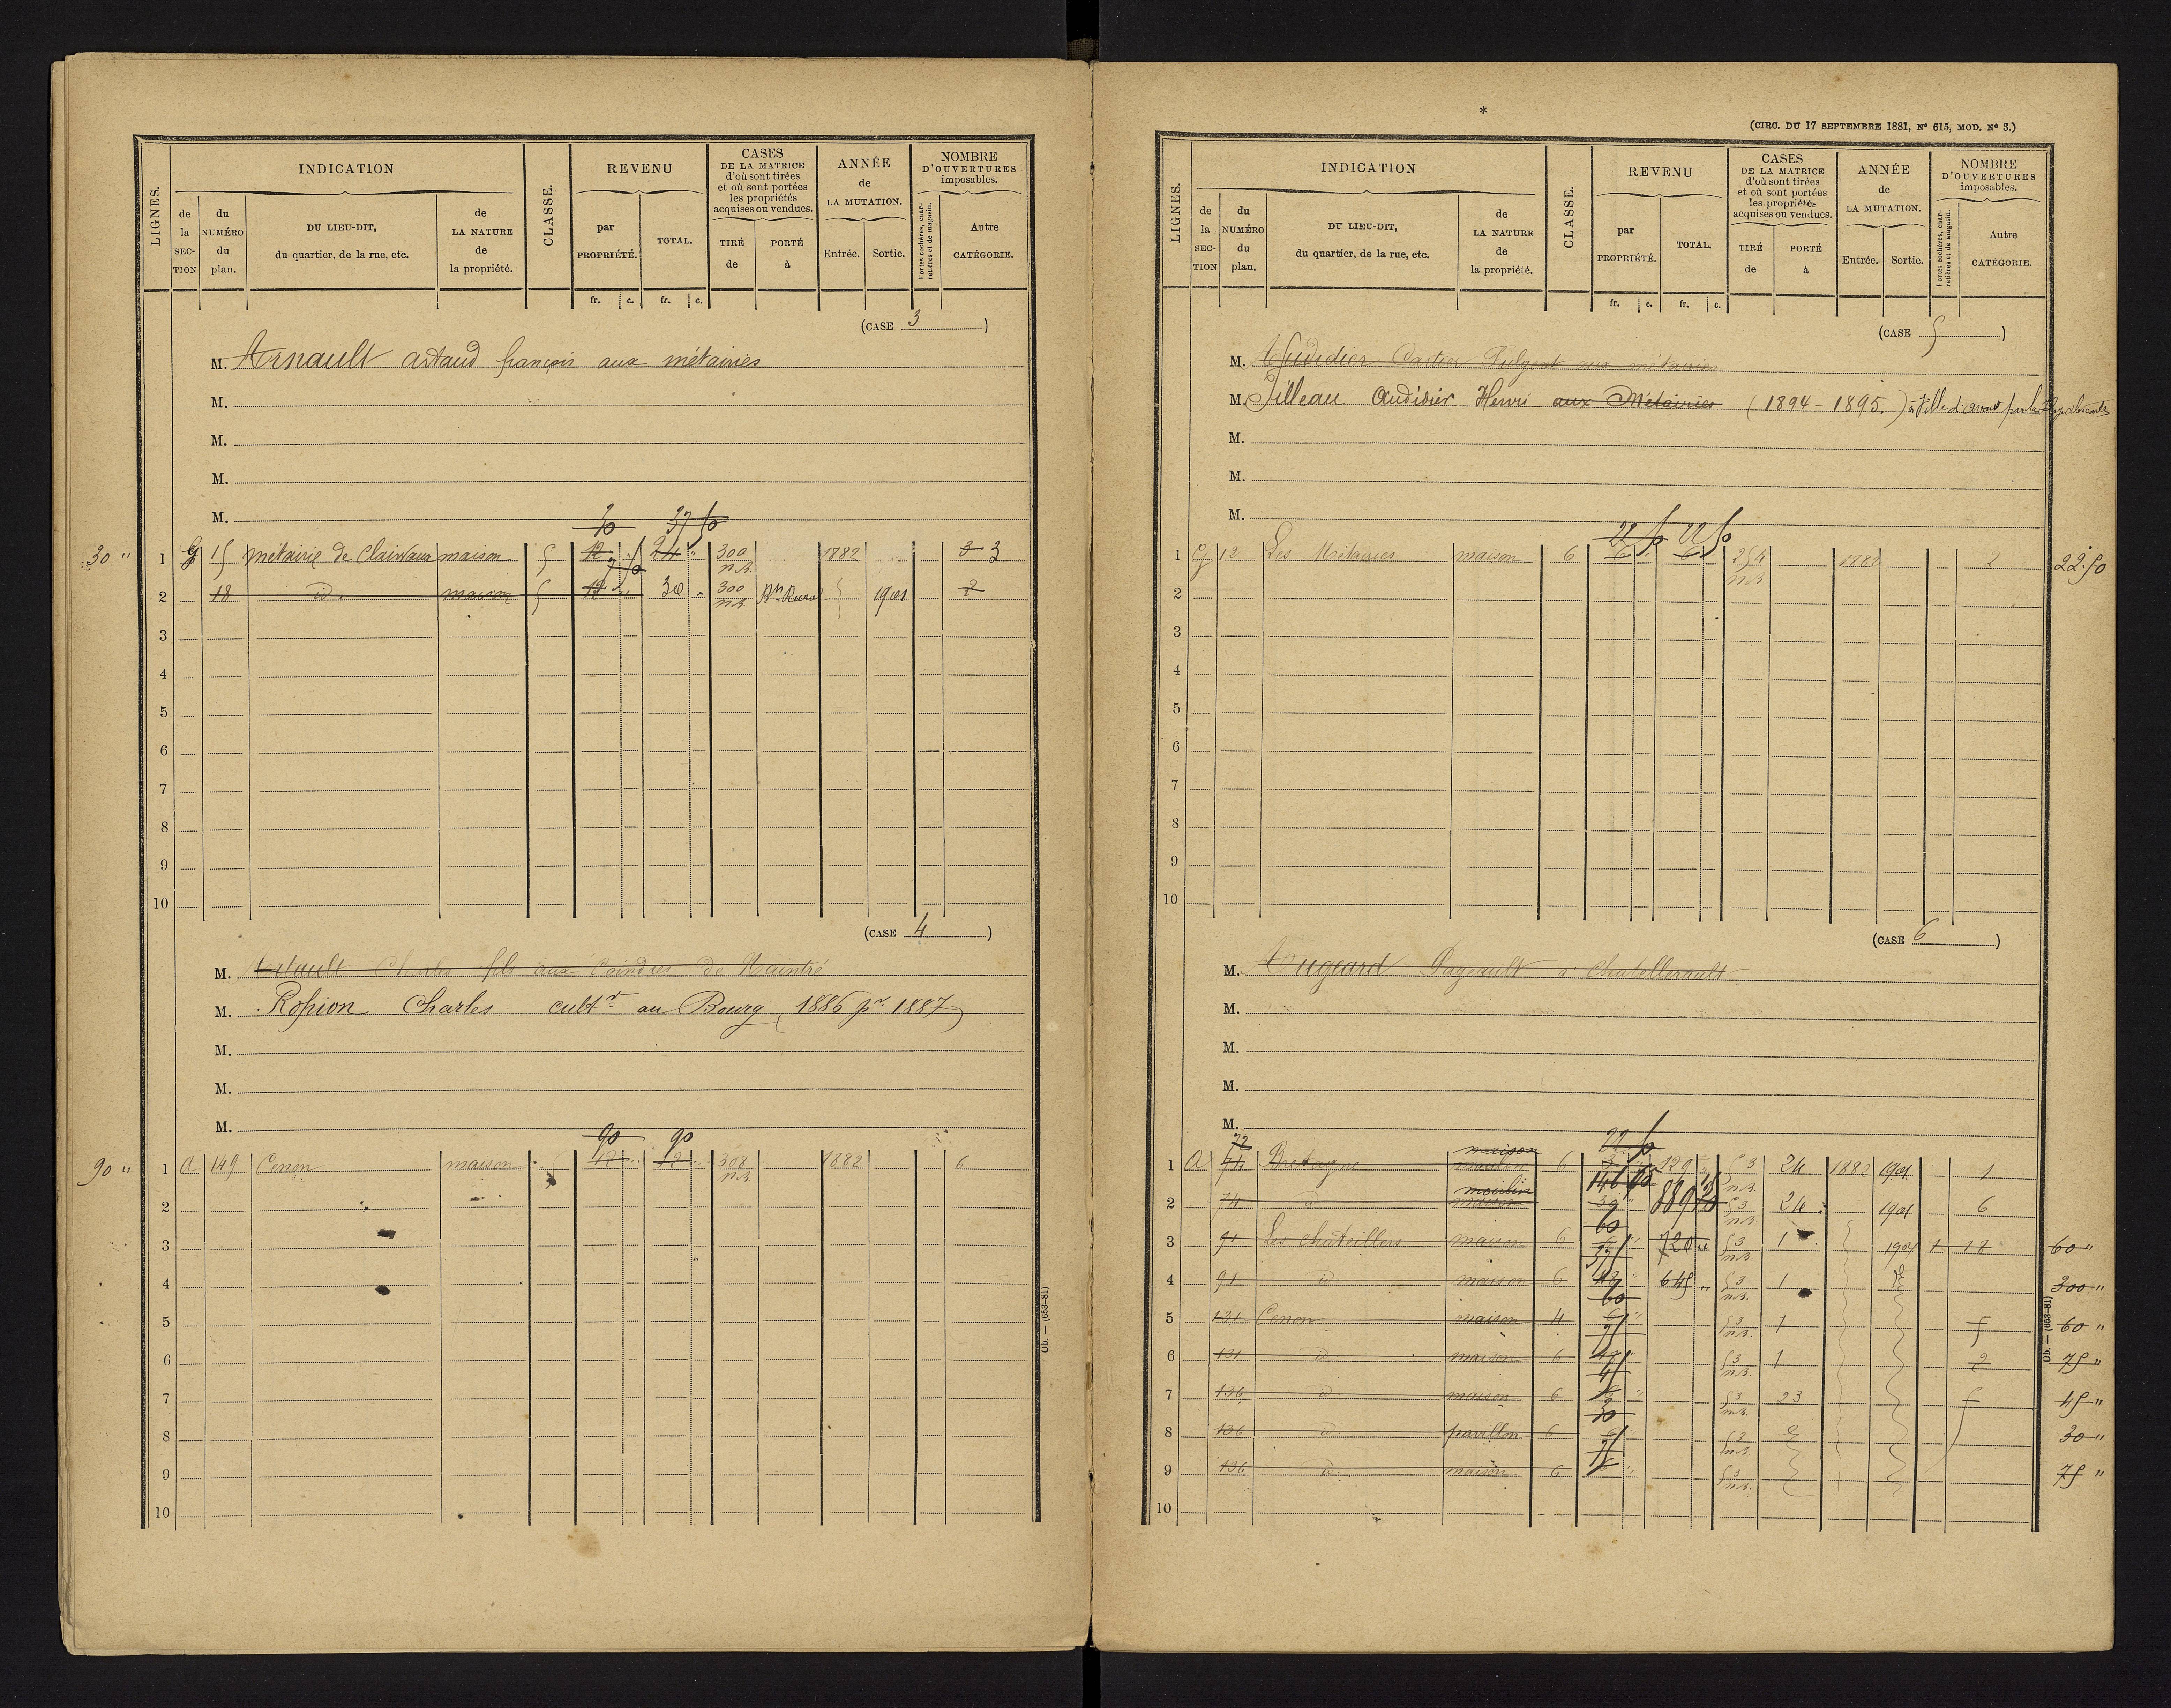 LIGNES.
INDICATION
de la SECTION
du NUMÉRO du plan.
DU LIEU-DIT, du quartier, de la rue, etc.
de LA NATURE de la propriété.
CLASSE.
REVENU
par PROPRIÉTÉ.
TOTAL.
fr. c. fr. c.
CASES DE LA MATRICE d'où sont tirées et où sont portées les propriétés acquises ou vendues.
TIRÉ de
PORTÉ à
ANNÉE de LA MUTATION.
Entrée. Sortie.
NOMBRE D'OUVERTURES imposables.
Portes cochères, charretières et de magasin.
Autre CATÉGORIE.
(CASE 3)
M. Arnault artaud françois aux métairies
M.
M.
M.
M.
30 37 50
30 " 1 G 15 métairie de Clairvaux maison 5 12 " 24 " 300 n.B. 1882 3 3
7 50
2 18 id. maison 5 12 " 30 " 300 n.B. 1901 2
3
4
5
6
7
8
9
10
(CASE 4)
M. Artault Charles fils aux Coindres de Naintré
M. Ropion Charles cultr au Bourg (1886 pr 1887)
M.
M.
M.
90 90
90 " 1 A 149 Cenon maison 12 " 12 " 308 n.B. 1882 6
2
3
4
5
6
7
8
9
10
Ob. — (653-81)
*
(CIRC. DU 17 SEPTEMBRE 1881, N° 615, MOD. N° 3.)
LIGNES.
INDICATION
de la SECTION
du NUMÉRO du plan.
DU LIEU-DIT, du quartier, de la rue, etc.
de LA NATURE de la propriété.
CLASSE.
REVENU
par PROPRIÉTÉ.
TOTAL.
fr. c. fr. c.
CASES DE LA MATRICE d'où sont tirées et où sont portées les propriétés acquises ou vendues.
TIRÉ de
PORTÉ à
ANNÉE de LA MUTATION.
Entrée. Sortie.
NOMBRE D'OUVERTURES imposables.
Portes cochères, charretières et de magasin.
Autre CATÉGORIE.
(CASE 5)
M. Audidier Cartier Fulgent aux métairies
M. Tilleau Audidier Henri aux Métairies (1894-1895.)
M.
M.
M.
22 50 22 50
1 G 12 Les Métairies maison 6 6 " 6 " 254 n.B. 1882 2 22.50
2
3
4
5
6
7
8
9
10
(CASE 6)
M. Augeard Pageault à Chatellerault
M.
M.
M.
M.
72 maison 22 50
1 A 74 Bretagne moulin 6 129 53 n.B. 24 1882 1901 1
moulin
2 74 id maison 889 70 53 n.B. 24 1901 6
60
3 91 Les chateilliers maison 6 720 " 53 n.B. 1 1901 1 18 60 "
4 91 id maison 6 645 " 53 n.B. 1 300 "
60
5 131 Cenon maison 4 53 n.B. 1 5 60 "
75
6 131 id maison 6 53 n.B. 1 2 75 "
45
7 136 id maison 6 53 n.B. 23 45 "
30
8 136 id pavillon 6 53 n.B. 30 "
75
9 136 id maison 6 53 n.B. 75 "
10
Ob. — (653-81)